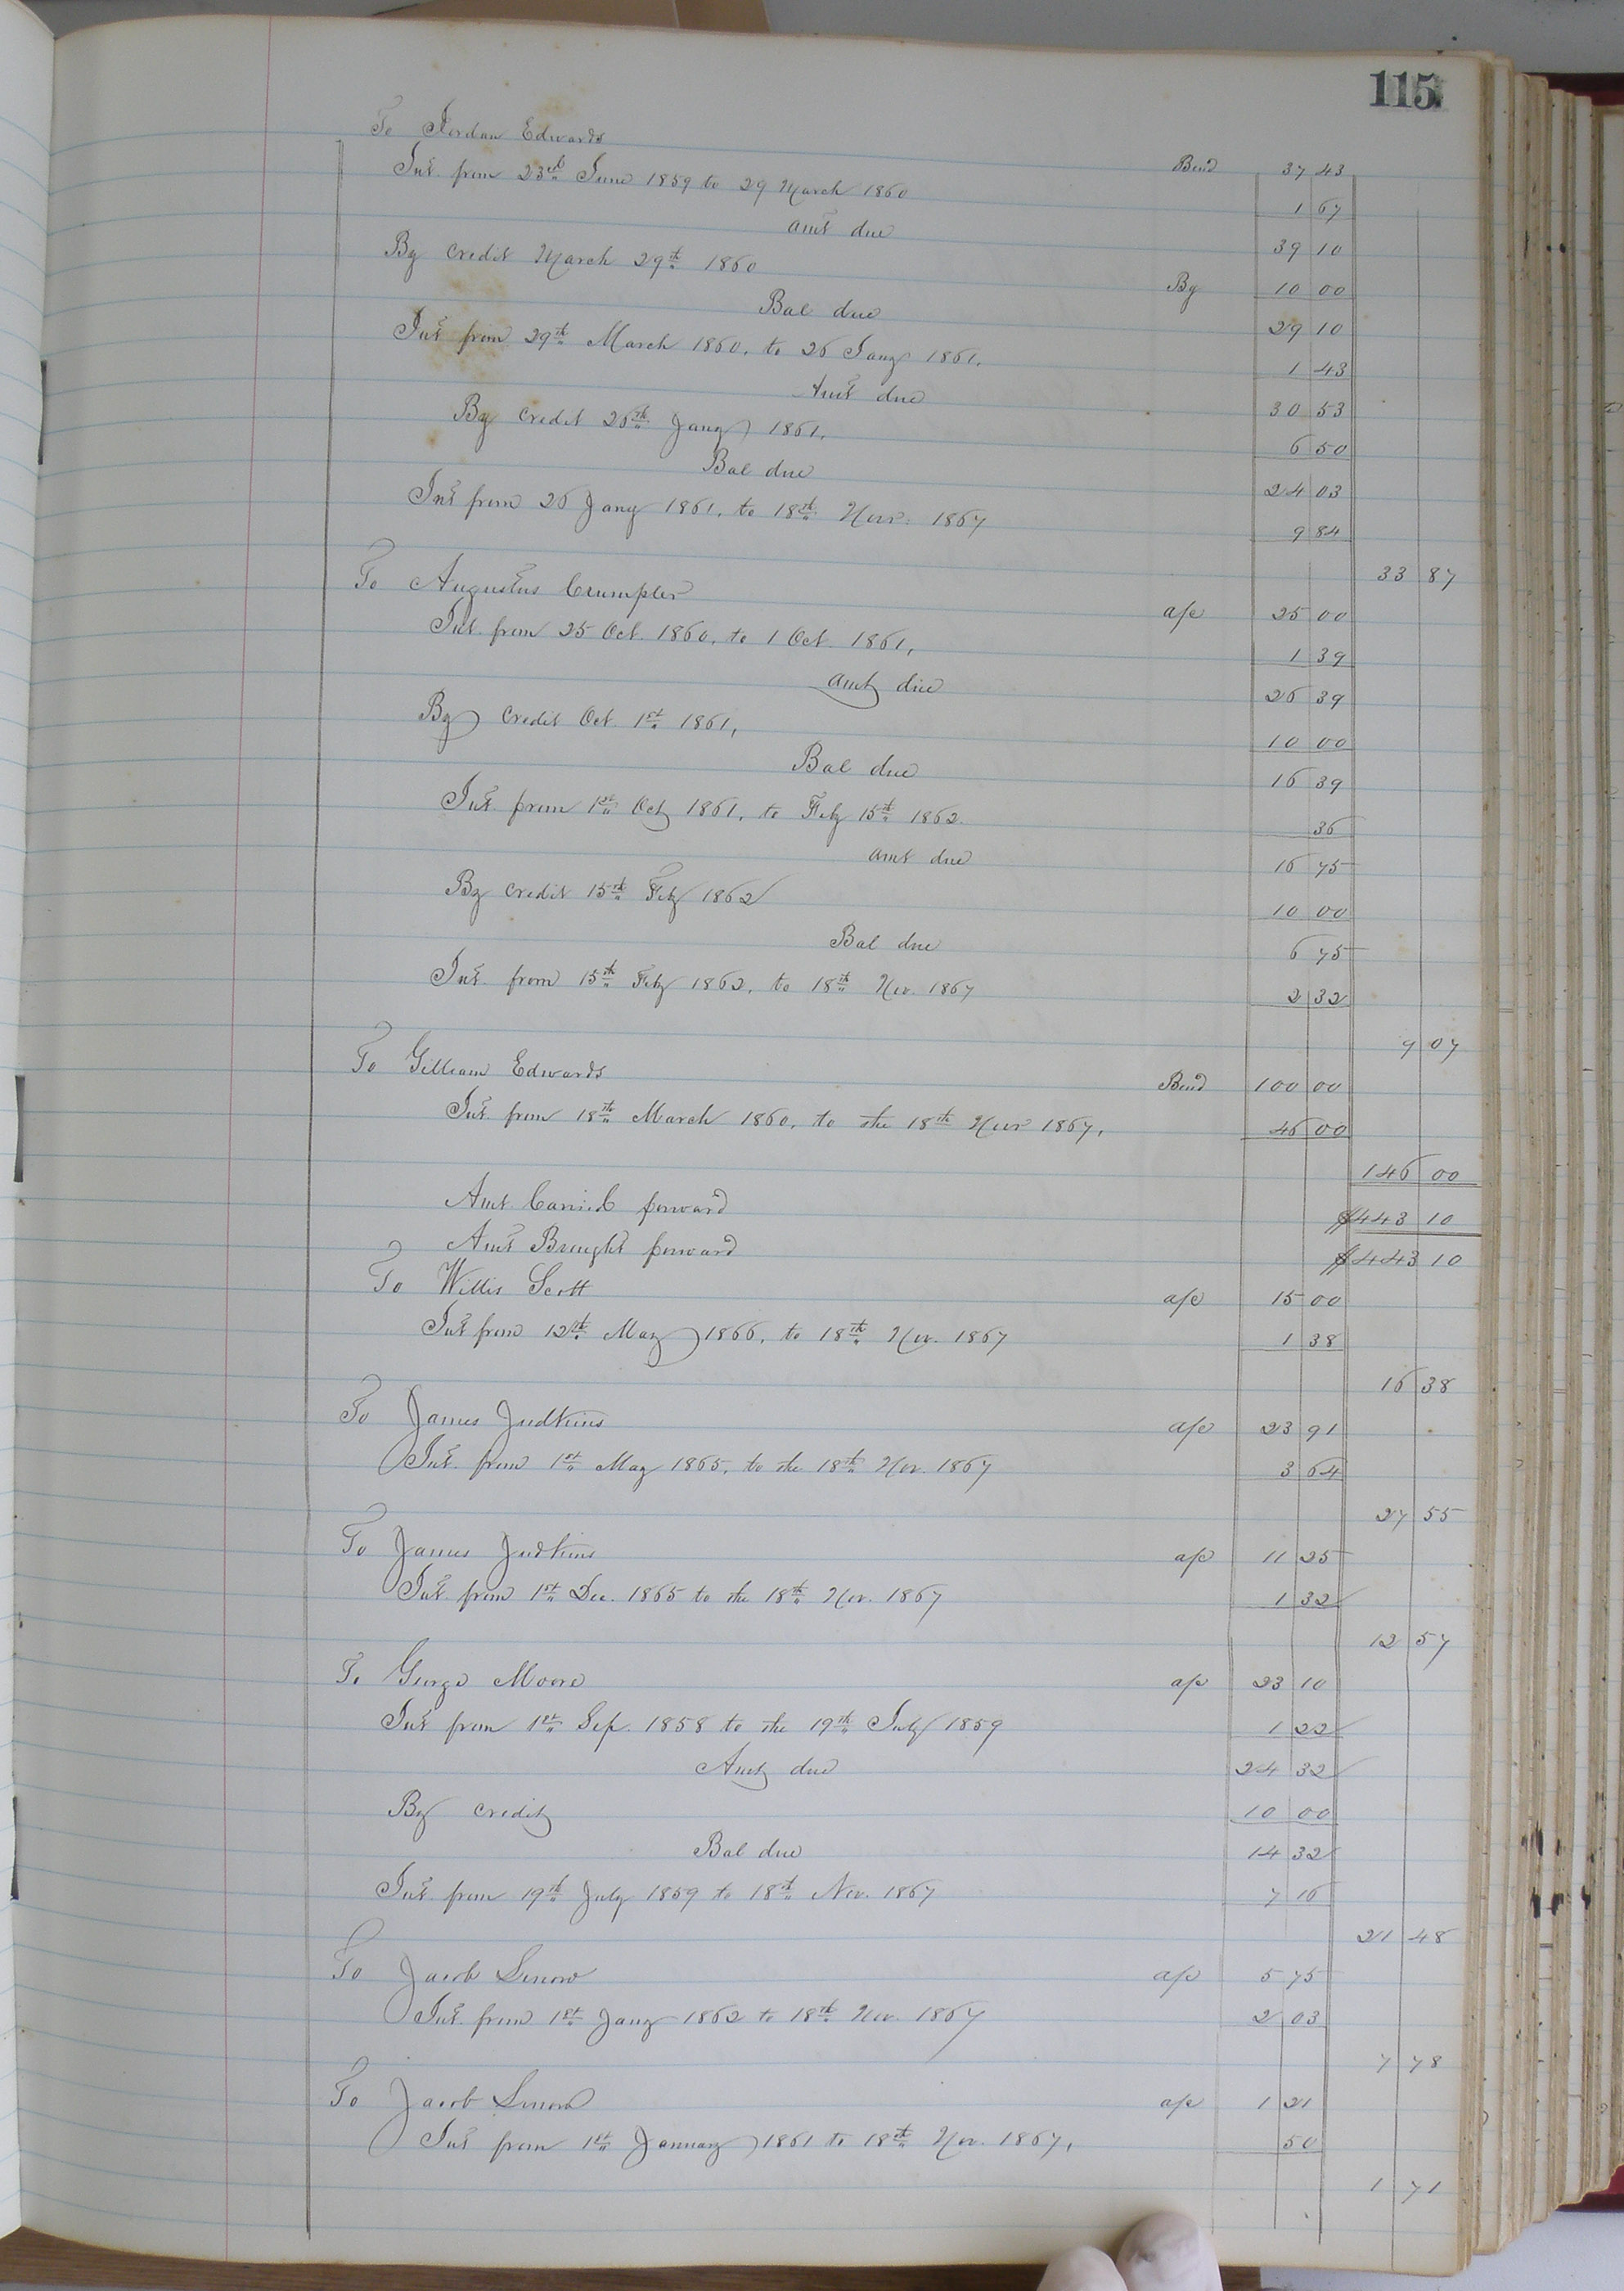 115
To Jordan Edwards Bond 37 43
Int. from 23rd June 1859 to 29 March 1860 1 67
amt due 39 10
By credit March 29th 1860 By 10 00
Bal due 29 10
Int from 29th March 1860, to 26 Jany 1861, 1 43
Amt due 30 53
By credit 26th Jany 1861, 6 50
Bal due 24 03
Int from 26 Jany 1861, to 18th Nov. 1867 9 84
33 87
To Augustus Crumpler a/c 25 00
Int. from 25 Oct. 1860, to 1 Oct. 1861, 1 39
amt due 26 39
By credit Oct. 1st 1861, 10 00
Bal due 16 39
Int. from 1st Oct 1861, to Feby 15th 1862. 36
amt due 16 75
By credit 15th Feby 1862 10 00
Bal due 6 75
Int. from 15th Feby 1862, to 18th Nov. 1867 2 32
9 07
To Gilliam Edwards Bond 100 00
Int. from 18th March 1860, to the 18th Nov 1867, 46 00
146 00
Amt. Carried forward $443 10
Amt Brought forward $443 10
To Willis Scott a/c 15 00
Int from 12th May 1866, to 18th Nov. 1867 1 38
16 38
To James Judkins a/c 23 91
Int. from 1st May 1865, to the 18th Nov. 1867 3 64
27 55
To James Judkins a/c 11 25
Int. from 1st Dec. 1865 to the 18th Nov. 1867 1 32
12 57
To George Moore a/c 23 10
Int from 1st Sep. 1858 to the 19th July 1859 1 22
Amt due 24 32
By credit 10 00
Bal due 14 32
Int. from 19th July 1859 to 18th Nov. 1867 7 16
21 48
To Jacob a/c 5 75
Int. from 1st Jany 1862 to 18th Nov. 1867 2 03
7 78
To Jacob a/c 1 21
Int from 1st January 1861 to 18th Nov. 1867, 50
1 71